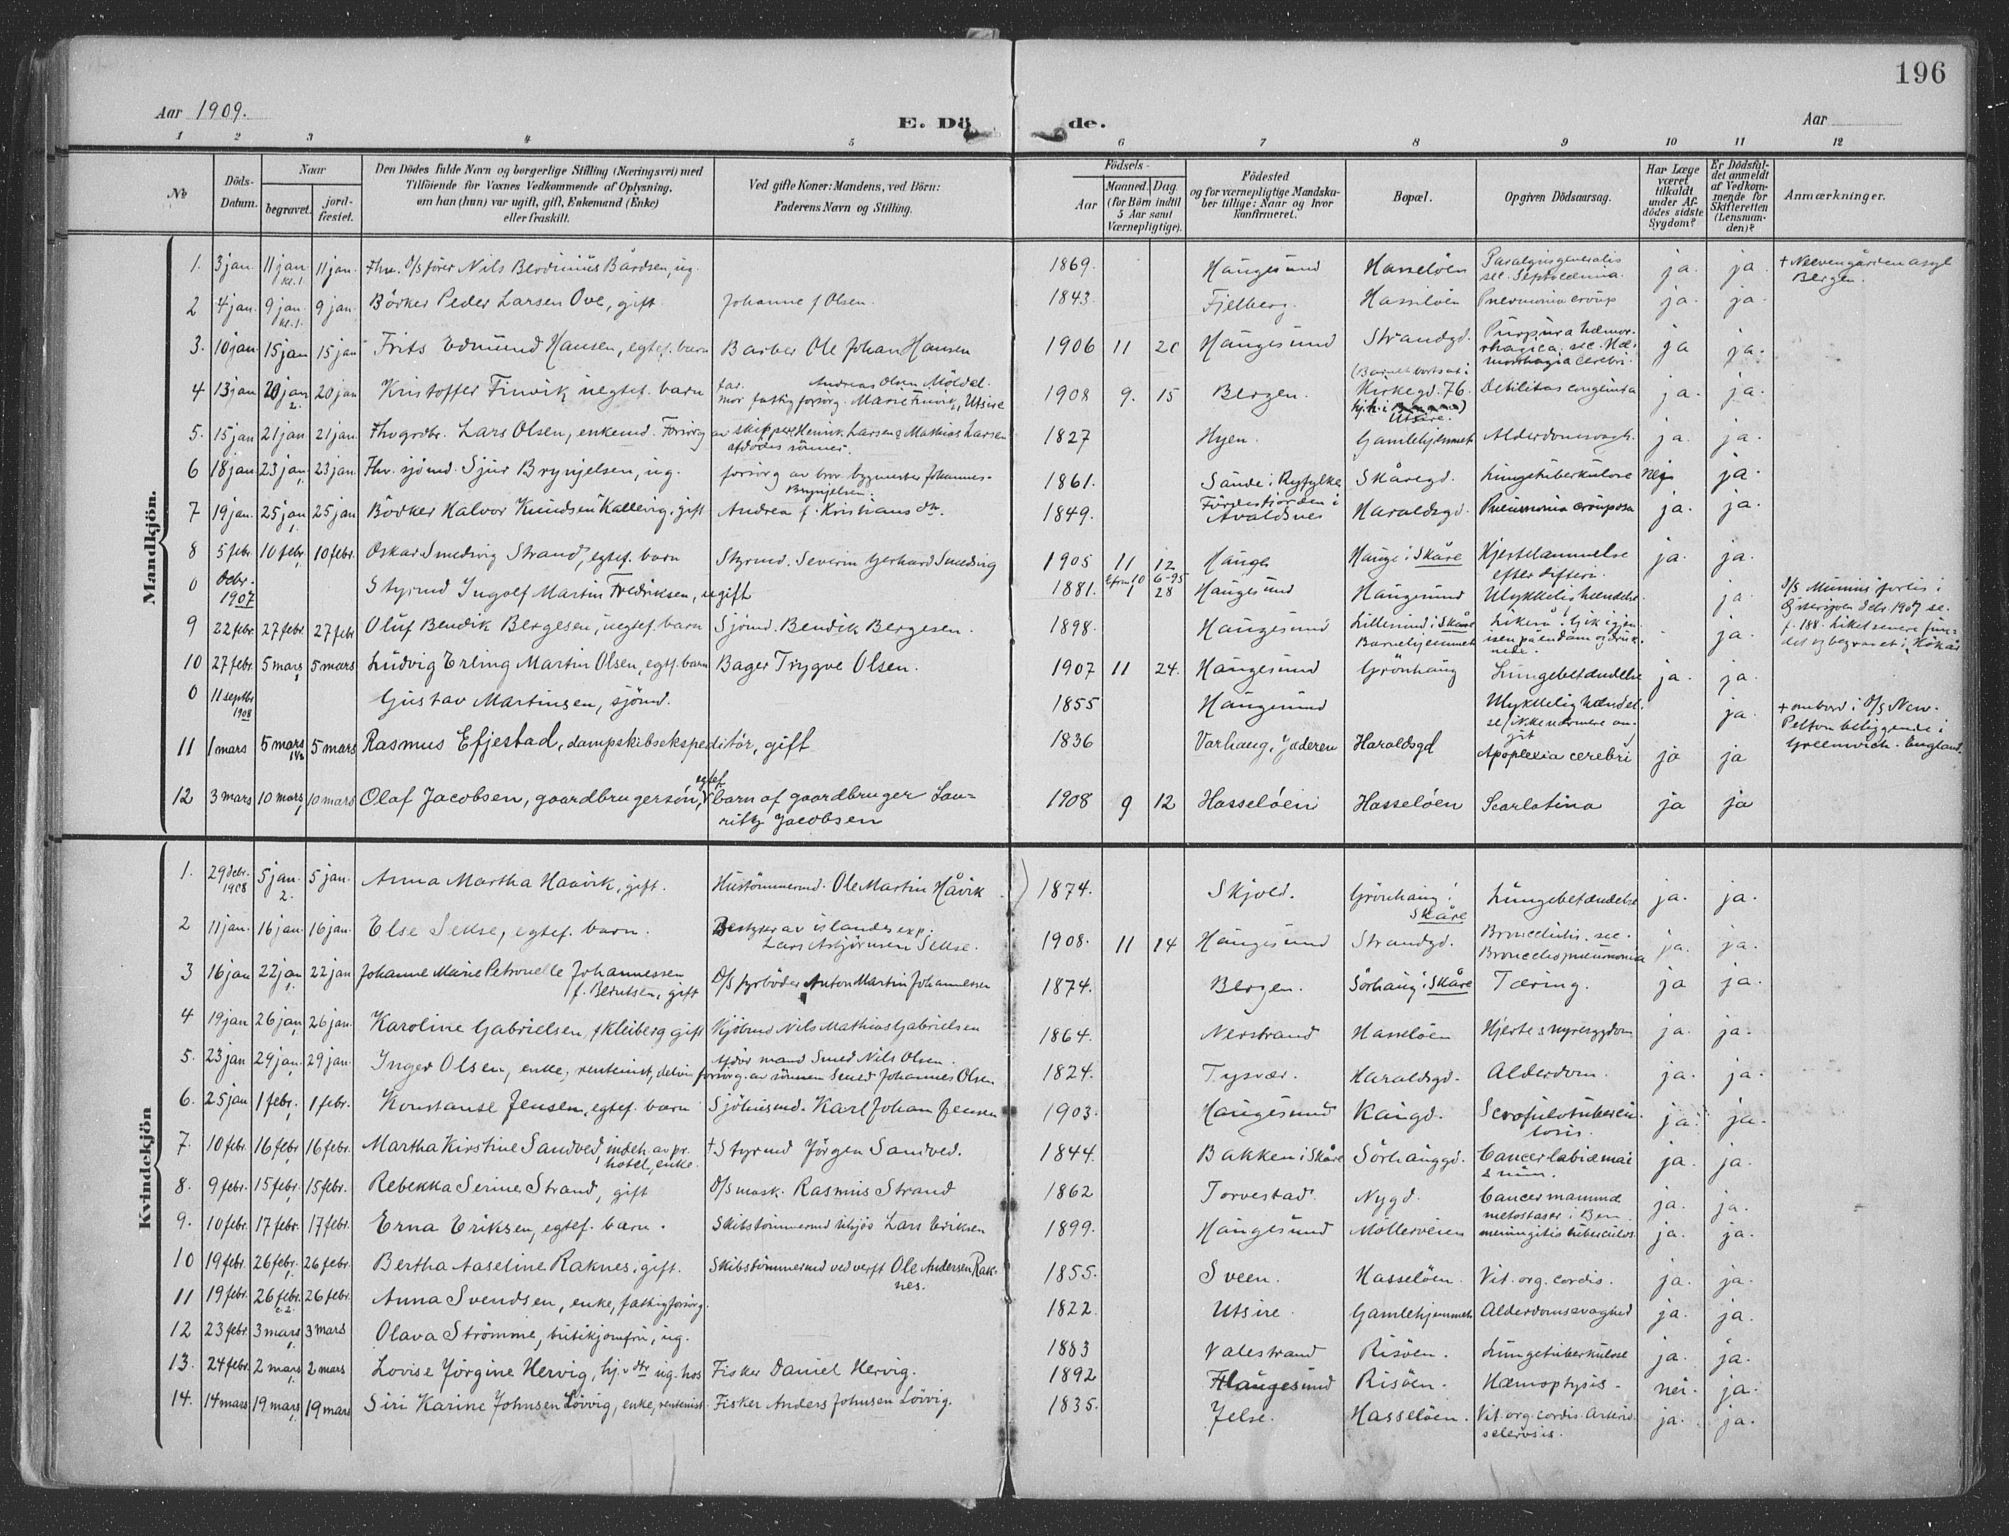 196
Aar 1909.
E. Dö de.
Aar
1 2 3 4 5 6 7 8 9 10 11 12
№
Döds-Datum.
Naar
begravet.
jord-fæstet.
Den Dödes fulde Navn og borgerlige Stilling (Næringsvei) med
Tilföiende for Voxnes Vedkommende af Oplysning,
om han (hun) var ugift, gift, Enkemand (Enke)
eller fraskilt.
Ved gifte Koner: Mandens, ved Börn:
Faderens Navn og Stilling.
Födsels-
Aar
Maaned. Dag.
(for Börn indtil
5 Aar samt
Værnepligtige).
Födested
og for værnepligtige Mandska-
ber tillige: Naar og hvor
konfirmeret.
Bopæl.
Opgiven Dödsaarsag.
Har Læge
været
tilkaldt
under Af-
dödes sidste
Sygdom?
Er Dödsfal-
det anmeldt
af Vedkom-
mende for
Skifteretten
(Lensman-
den)?
Anmærkninger.
Mandkjön.
1. 3 jan. 11 jan. kl. 1. 11 jan. Fhv. d/s fører Nils Bårdsen, ug. 1869. Haugesund Hasseløen Paralysis generalis sec. ja. ja. + Neevengården asyl Bergen.
2 4 jan. 9 jan. kl. 1. 9 jan. Bödker Peder Larsen Ove, gift. Johanne f Olsen. 1843. Fjelberg. Hasseløen Pneumonia croup ja. ja.
3. 10 jan. 15 jan 15 jan Frits Edmund Hansen, egtef. barn Barber Ole Johan Hansen 1906 11 20 Haugesund Strandgd. Purpura hæmor-rhagica. sec. Hæ-morrhagia cerebri. ja ja.
4 13 jan 20 jan 2. 20 jan Kristoffer Finvik uegtef. barn far. Andreas Olsen Möldal. mor fattigforsörg. Marie Finvik, Utsire 1908 9. 15 Bergen. (Barnet bortsat i Kirkegd. 76. hj.h. i Utsire.) Debilitas congenita ja. ja.
5. 15 jan. 21 jan. 21 jan. Fhv grdbr. Lars Olsen, enkemd. Forsörg av skippere Henrik Larsen & Mathias Larsen afdödes sönner. 1827 Hyen. Gamlehjemmet Alderdomssvagh. ja. ja.
6 18 jan. 23 jan. 1. 23 jan. Fhv. sjömd. Sjur Brynjelsen, ug. forsörg av bror bygmester Johannes Brynjelsen. 1861. Sande i Ryfylke Skåregd. Lungetuberkulose nei ja
7 19 jan. 25 jan 1. 25 jan Bödker Halvor Knudsen Kallevig, gift Andrea f. Kristians dtr. 1849. Fördesfjorden i Avaldsnes Haraldsgd. Pneumonia crouposa ja. ja.
8 5 febr. 10 febr. 10 febr. Oskar Smedvig Strand, egtef. barn Styrmd. Severin Gerhard Smedvig 1905 11 12 Hauge Hauge i Skåre Hjertelammelse efter difteri. ja. ja.
0 Debr. 1907 Styrmd Ingolf Martin Fredriksen, ugift 1881. 1 28 Haugesund Haugesund Ulykkelig hændelse ja. D/S "Munin" forlis i Østersjøen debr 1907 se. f. 188. Liket senere fun-det og begravet i Kökar
9 22 febr. 27 febr. 27 febr. Oluf Bendik Bergesen, uegtef. barn Sjömd. Bendik Bergesen. 1898. Haugesund Lillesund i Skåre Barnehjemmet gik igjen-nem isen på en dam og druk-nede. ja.
10 27 febr. 5 mars 1 5 mars Ludvig Erling Martin Olsen, egtf. barn Bager Trygve Olsen. 1907 11 24. Haugesund Grönhaug Lungebetændelse ja. ja.
0 11 septbr 1908 Gustav Martinsen, sjömd. 1855 Haugesund Ulykkelig hændel-se, ikke nærmere an-git ja. + ombord i D/S New-Pelton beliggende i Greenwich. England.
11 1 mars 5 mars 5 mars Rasmus Efjestad, dampskibsekspeditör, gift 1836 Varhaug, Jæderen Haraldsgd Apoplexia cerebri ja ja
12 3 mars 10 mars 1 10 mars Olaf Jacobsen, gaardbrugersön, egtef. barn af gaardbruger Lau-ritz Jacobsen 1908 9 12 Hasselöen Hasselöen Scarlatina ja ja
Kvindekjön
1. 29 debr. 1908 5 jan. 2. 5 jan. Anna Martha Haavik, gift. Hustömmermd. Ole Martin Håvik 1874. Skjold. Grönhaug i Skåre Lungebetændelse ja. ja.
2 11 jan. 16 jan. 16 jan. Else Sekse, egtef. barn. Bestyrer av islandsexp. Lars Asbjörnsen Sekse. 1908. 11 14 Haugesund Strandgd. Bronchitis. sec. Bronchopneumonia ja. ja.
3 16 jan 22 jan 1. 22 jan Johanne Marie Petronelle Johannessen f. Berntsen, gift D/S fyrböder Anton Martin Johannessen 1874. Bergen. Sörhaug i Skåre Tæring. ja ja.
4 19 jan 26 jan 1 26 jan. Karoline Gabrielsen f Kleiberg gift Kjöbmd Nils Mathias Gabrielsen 1864. Nerstrand Hasselöen Hjerte & nyresygdom ja. ja.
5. 23 jan 29 jan. 1 29 jan. Inger Olsen, enke, rentenist, delvis forsörg. av sönnen Smed Johannes Olsen afdöv mand Smed Nils Olsen. 1824. Tysvær. Haraldsgd. Alderdom. ja. ja.
6. 25 jan 1 febr. 1 1 febr. Konstanse Jensen, egtef. barn Sjöhusmd. Karl Johan Jensen 1903. Haugesund Kaigd. Scrofulotubercu-losis. ja. ja.
7. 10 febr. 16 febr. 1 16 febr. Martha Kirstine Sandved, indeh. av pr. hotel, enke. + Styrmd Jörgen Sandved. 1844. Bakken i Skåre Sörhauggd. Cancer labiæ mai & min. ja. ja.
8. 9 febr. 15 febr. 1 15 febr. Rebekka Serine Strand, gift D/S mask. Rasmus Strand 1862 Torvestad. Nygd. Cancer mammæ metostaser i Ben ja. ja.
9. 10 febr. 17 febr. 1 17 febr. Erna Eriksen, egtef. barn. Skibstömmermd tilsjös Lars Eriksen 1899. Haugesund Möllerveien meningitis tuberculos. ja. ja.
10 19 febr. 26 febr. 1. 26 febr. Bertha Aaseline Raknes, gift. Skibstömmermd ved verft Ole Andersen Rak-nes. 1855. Sveen. Hasselöen. Vit. org. cordis. ja. ja.
11 19 febr. 26 febr. c. 2. 26 febr. Anna Svendsen, enke, fattigforsörg. 1822. Utsire. Gamlehjemmet Alderdomssvaghed ja. ja.
12 23 febr. 3 mars 1. 3 mars Olava Strömme, butikjomfru, ug. 1883 Valestrand Risöen. Lungetuberkulose ja. ja.
13. 24 febr. 2 mars 1. 2 mars Lovise Jörgine Hervig, hj.v. dtr ug. hos Fisker Daniel Hervig. 1892 Haugesund Risöen. Hæmoptysis. nei. ja.
14. 14 mars 19 mars 1. 19 mars Siri Karine Johnsen Lövvig, enke, rentenist. Fisker Anders Johnsen Lövvig. 1835. Jelse. Hasselöen. Vit. org. cordis. Arterio-sclerosis. ja. ja.